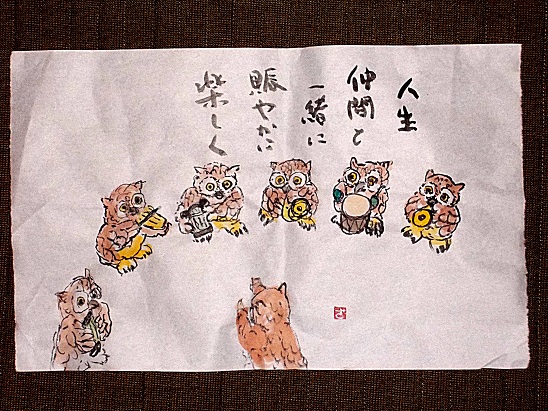 人生
仲間と
一緒に
賑やかに
楽しく